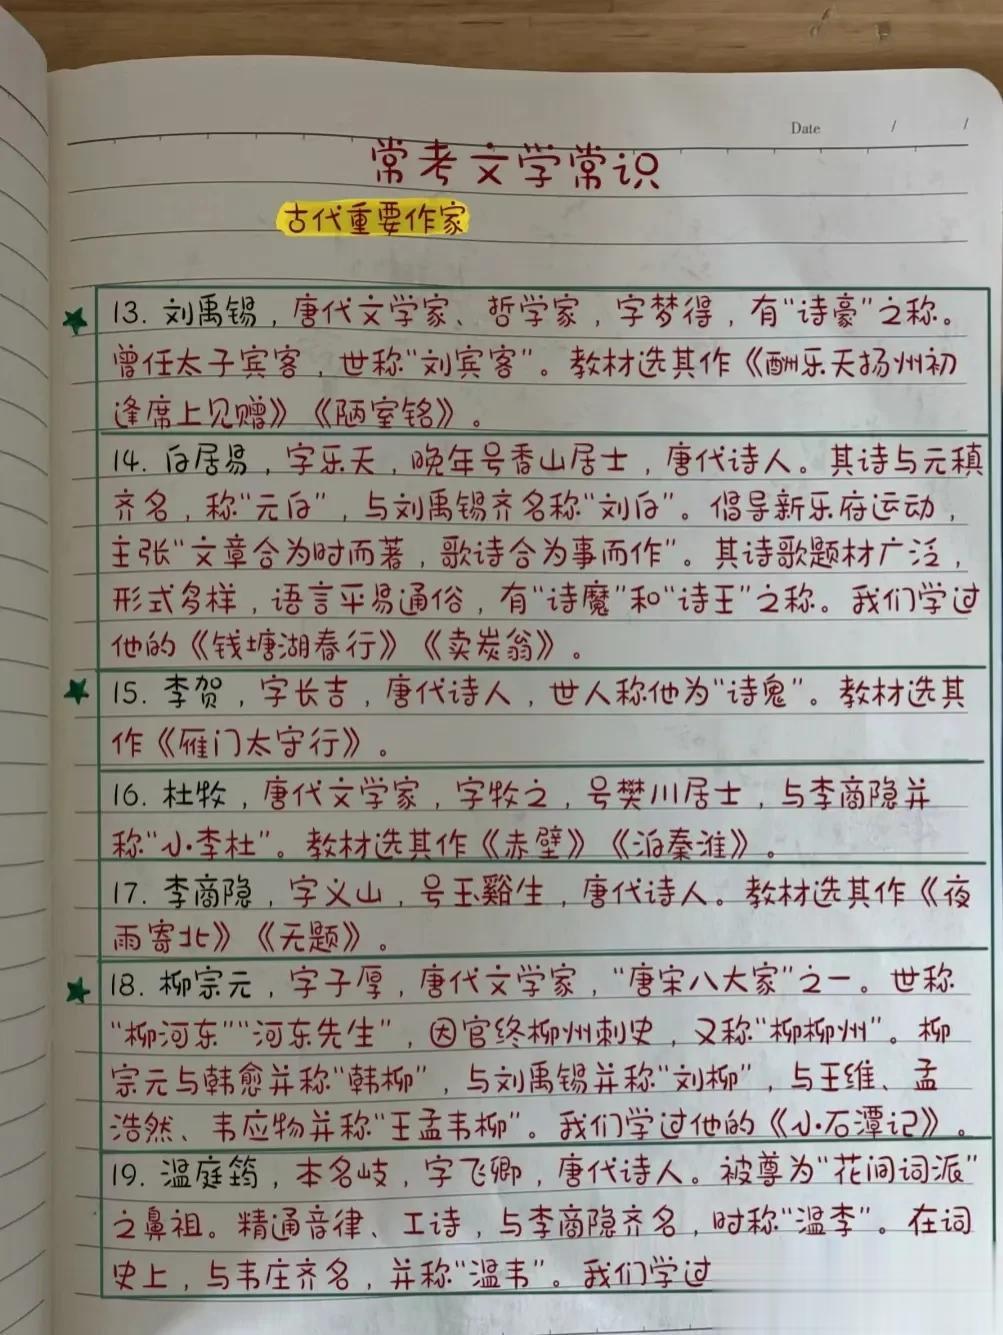 Date / /
常考文学常识
古代重要作家
13. 刘禹锡，唐代文学家、哲学家，字梦得，有“诗豪”之称。
曾任太子宾客，世称“刘宾客”。教材选其作《酬乐天扬州初
逢席上见赠》《陋室铭》。
14. 白居易，字乐天，晚年号香山居士，唐代诗人。其诗与元稹
齐名，称“元白”，与刘禹锡齐名称“刘白”。倡导新乐府运动，
主张“文章合为时而著，歌诗合为事而作”。其诗歌题材广泛，
形式多样，语言平易通俗，有“诗魔”和“诗王”之称。我们学过
他的《钱塘湖春行》《卖炭翁》。
15. 李贺，字长吉，唐代诗人，世人称他为“诗鬼”。教材选其
作《雁门太守行》。
16. 杜牧，唐代文学家，字牧之，号樊川居士，与李商隐并
称“小李杜”。教材选其作《赤壁》《泊秦淮》。
17. 李商隐，字义山，号玉谿生，唐代诗人。教材选其作《夜
雨寄北》《无题》。
18. 柳宗元，字子厚，唐代文学家，“唐宋八大家”之一。世称
“柳河东”“河东先生”，因官终柳州刺史，又称“柳柳州”。柳
宗元与韩愈并称“韩柳”，与刘禹锡并称“刘柳”，与王维、孟
浩然、韦应物并称“王孟韦柳”。我们学过他的《小石潭记》。
19. 温庭筠，本名岐，字飞卿，唐代诗人。被尊为“花间词派”
之鼻祖。精通音律、工诗，与李商隐齐名，时称“温李”。在词
史上，与韦庄齐名，并称“温韦”。我们学过